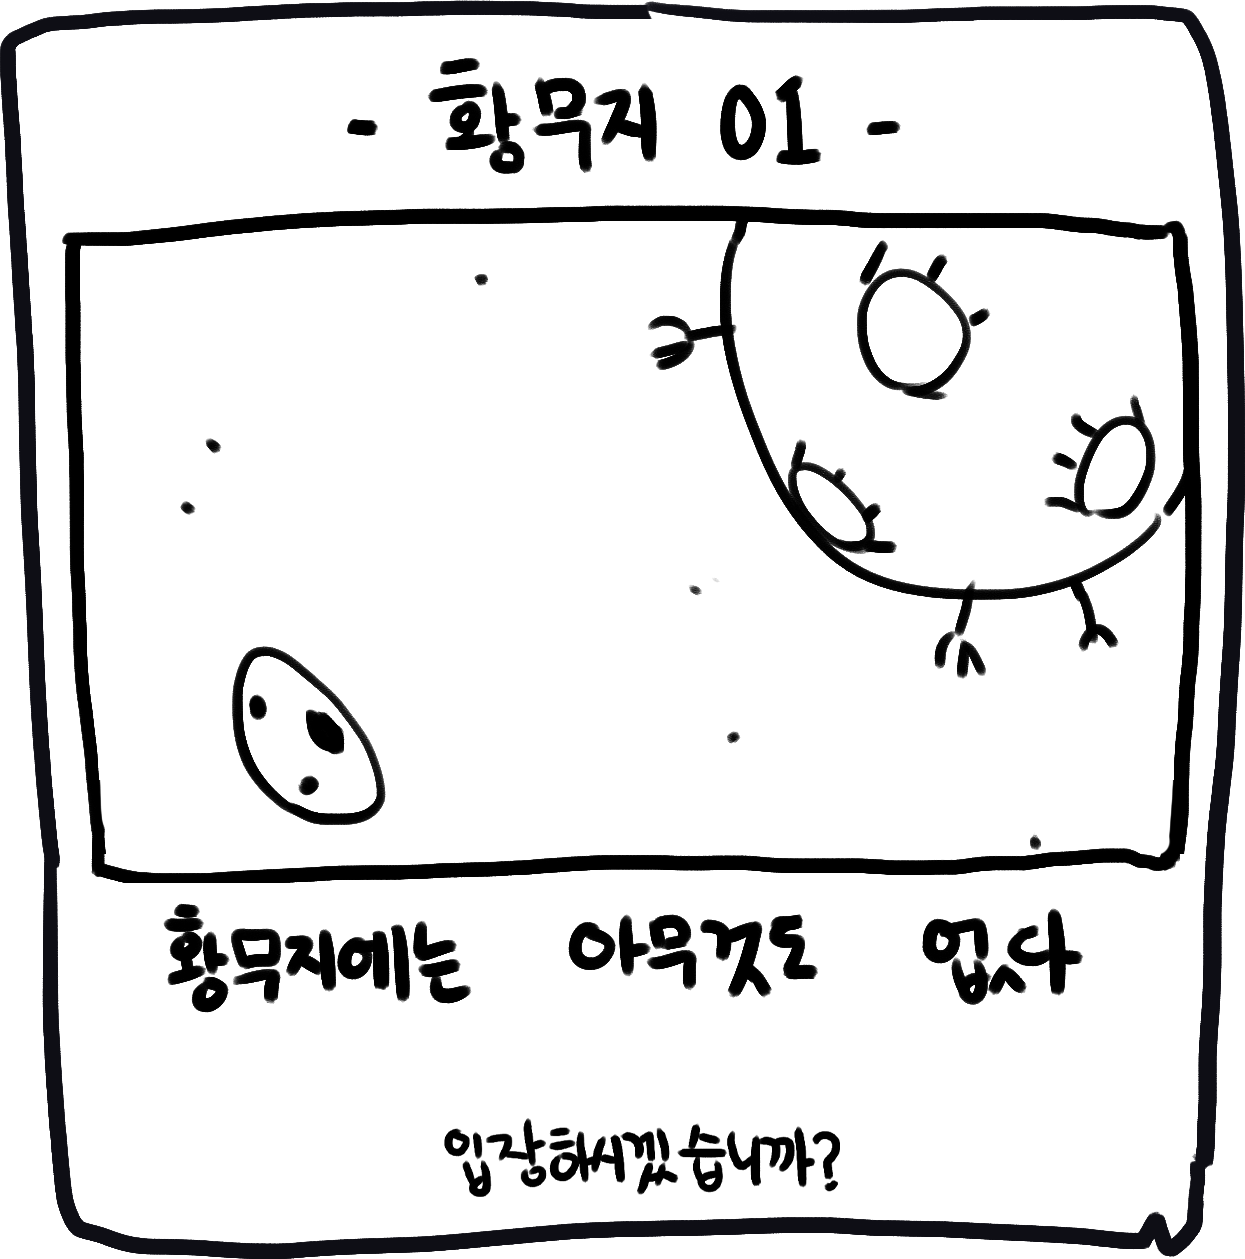 - 황무지 01 -
황무지에는 아무것도 없다
입장하시겠습니까?